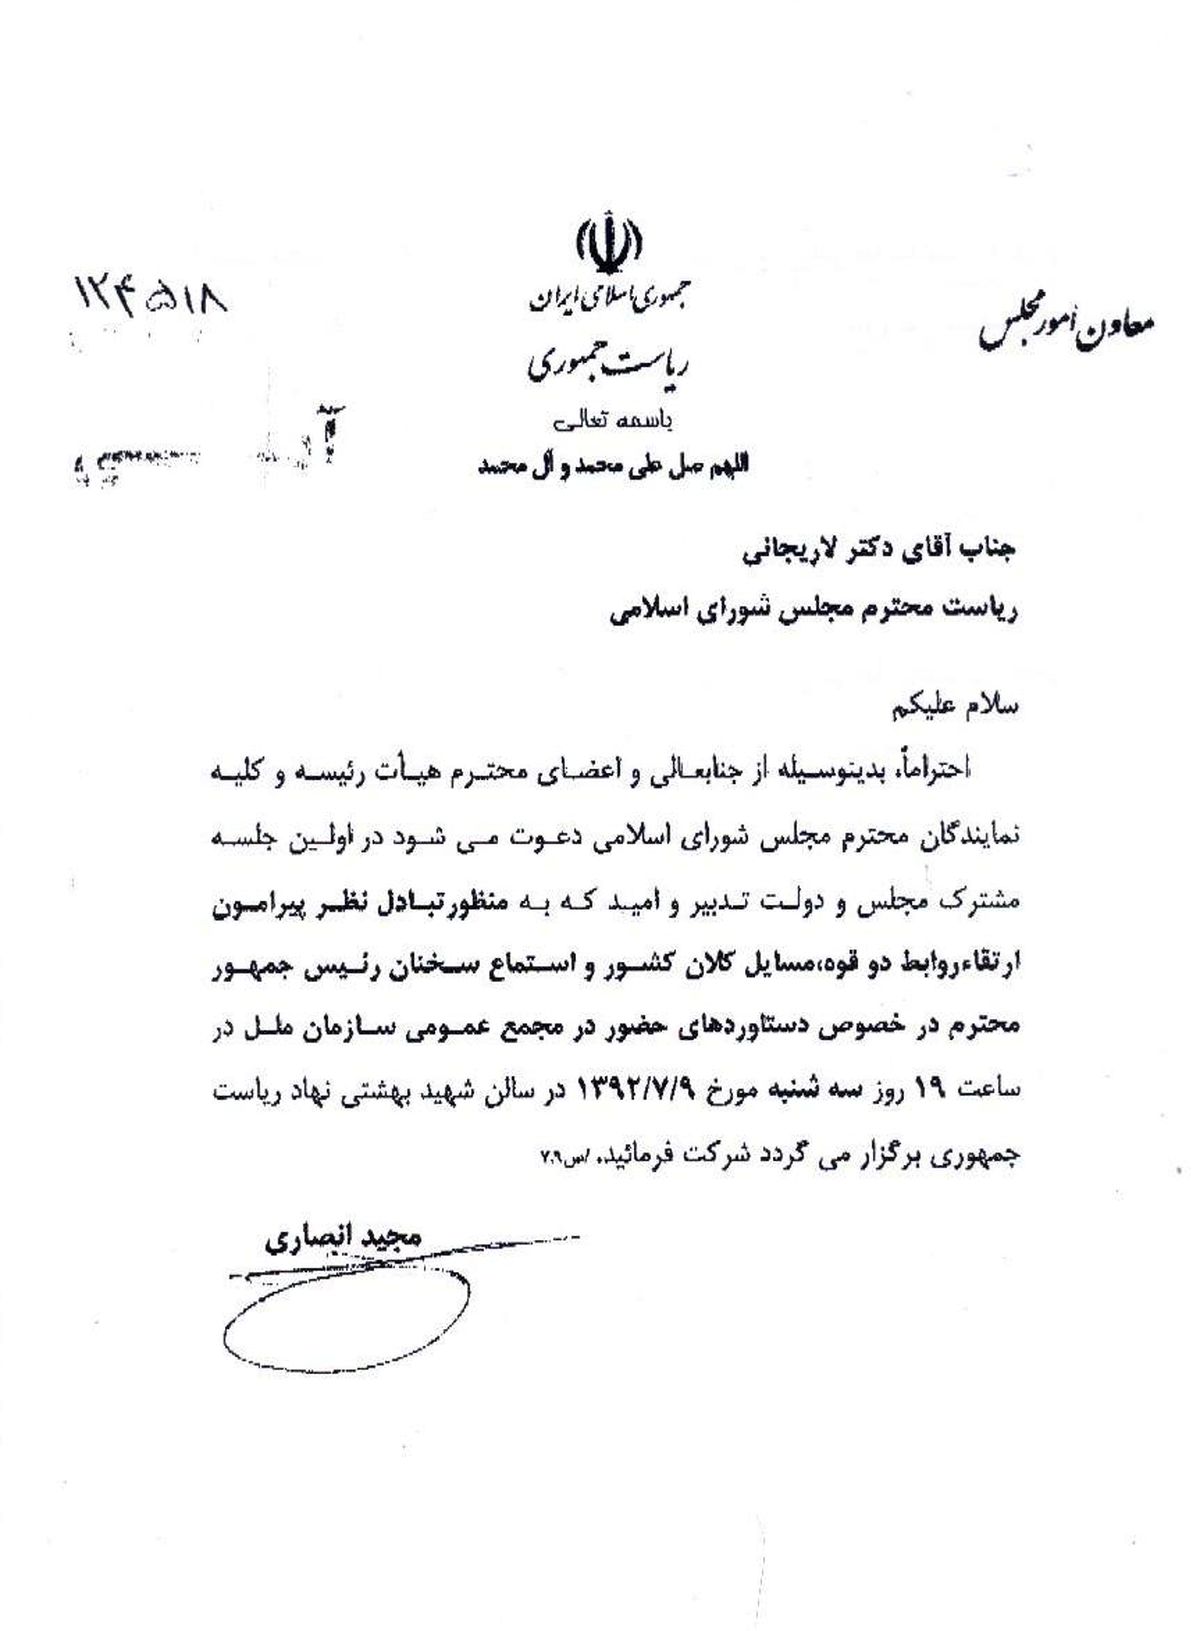 جمهوری اسلامی ایران
ریاست جمهوری
معاون امور مجلس
۱۲۴۵۱۸
باسمه تعالی
اللهم صل علی محمد و آل محمد
جناب آقای دکتر لاریجانی
ریاست محترم مجلس شورای اسلامی
سلام علیکم
احتراماً، بدینوسیله از جنابعالی و اعضای محترم هیأت رئیسه و کلیه
نمایندگان محترم مجلس شورای اسلامی دعوت می شود در اولین جلسه
مشترک مجلس و دولت تدبیر و امید که به منظورتبادل نظر پیرامون
ارتقاءروابط دو قوه،مسایل کلان کشور و استماع سخنان رئیس جمهور
محترم در خصوص دستاوردهای حضور در مجمع عمومی سازمان ملل در
ساعت ۱۹ روز سه شنبه مورخ ۱۳۹۲/۷/۹ در سالن شهید بهشتی نهاد ریاست
جمهوری برگزار می گردد شرکت فرمائید. /س۷۰۹
مجید انصاری